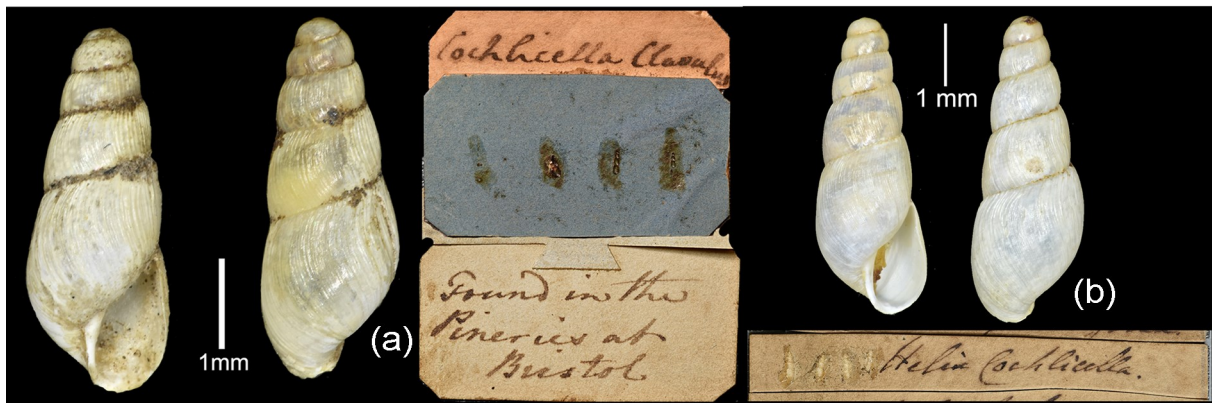 Cochlicella Clavulus
Found in the
Pineries at
Bristol
1mm
(a)
1 mm
(b)
Helix Cochlicella.